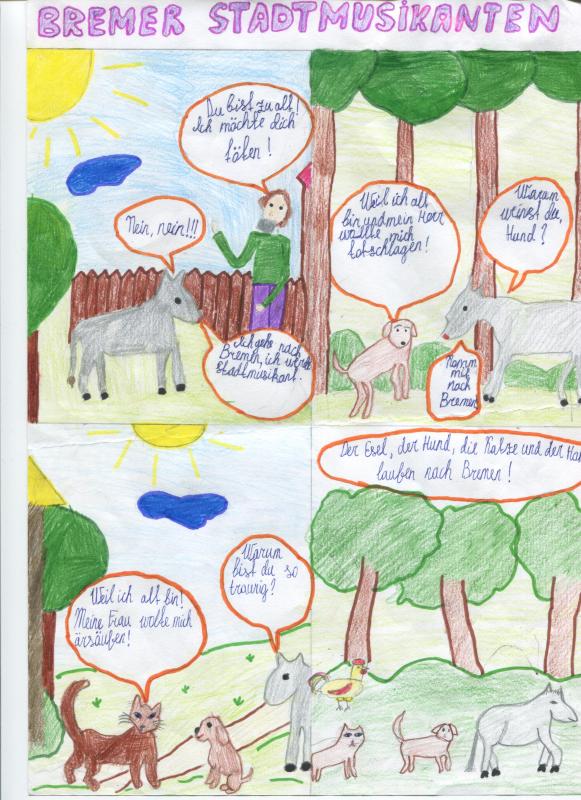 BREMER STADTMUSIKANTEN
Du bist zu alt!
Ich möchte dich
töten!
Nein, nein!!!
Ich gehe nach
Bremen, ich werde
Stadtmusikant.
Weil ich alt
bin und mein Herr
wollte mich
totschlagen!
Warum
weinst du,
Hund?
Komm
mit
nach
Bremen
Warum
bist du so
traurig?
Weil ich alt bin!
Meine Frau wolle mich
ersäufen!
Der Esel, der Hund, die Katze und der Ha
laufen nach Bremen!